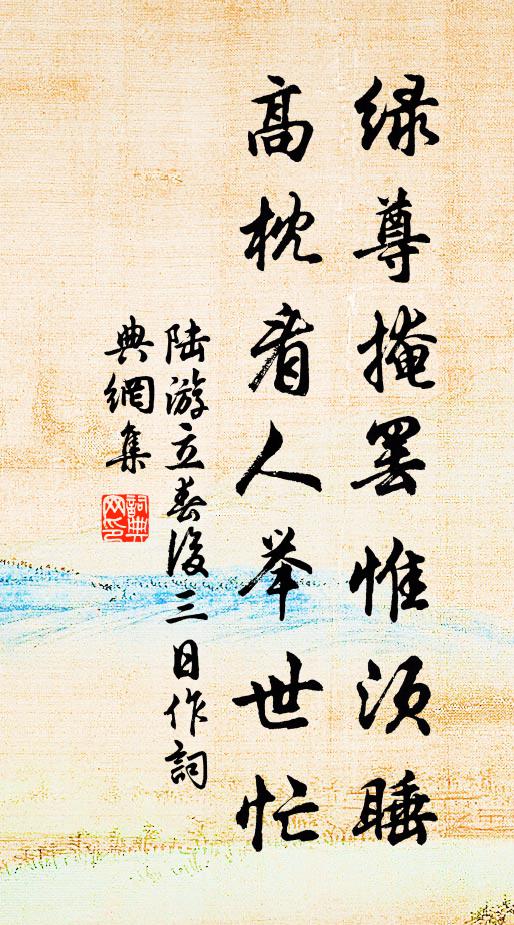 绿尊掩罢惟须睡
高枕看人举世忙
陆游立春后三日作词
典网集
词典网印